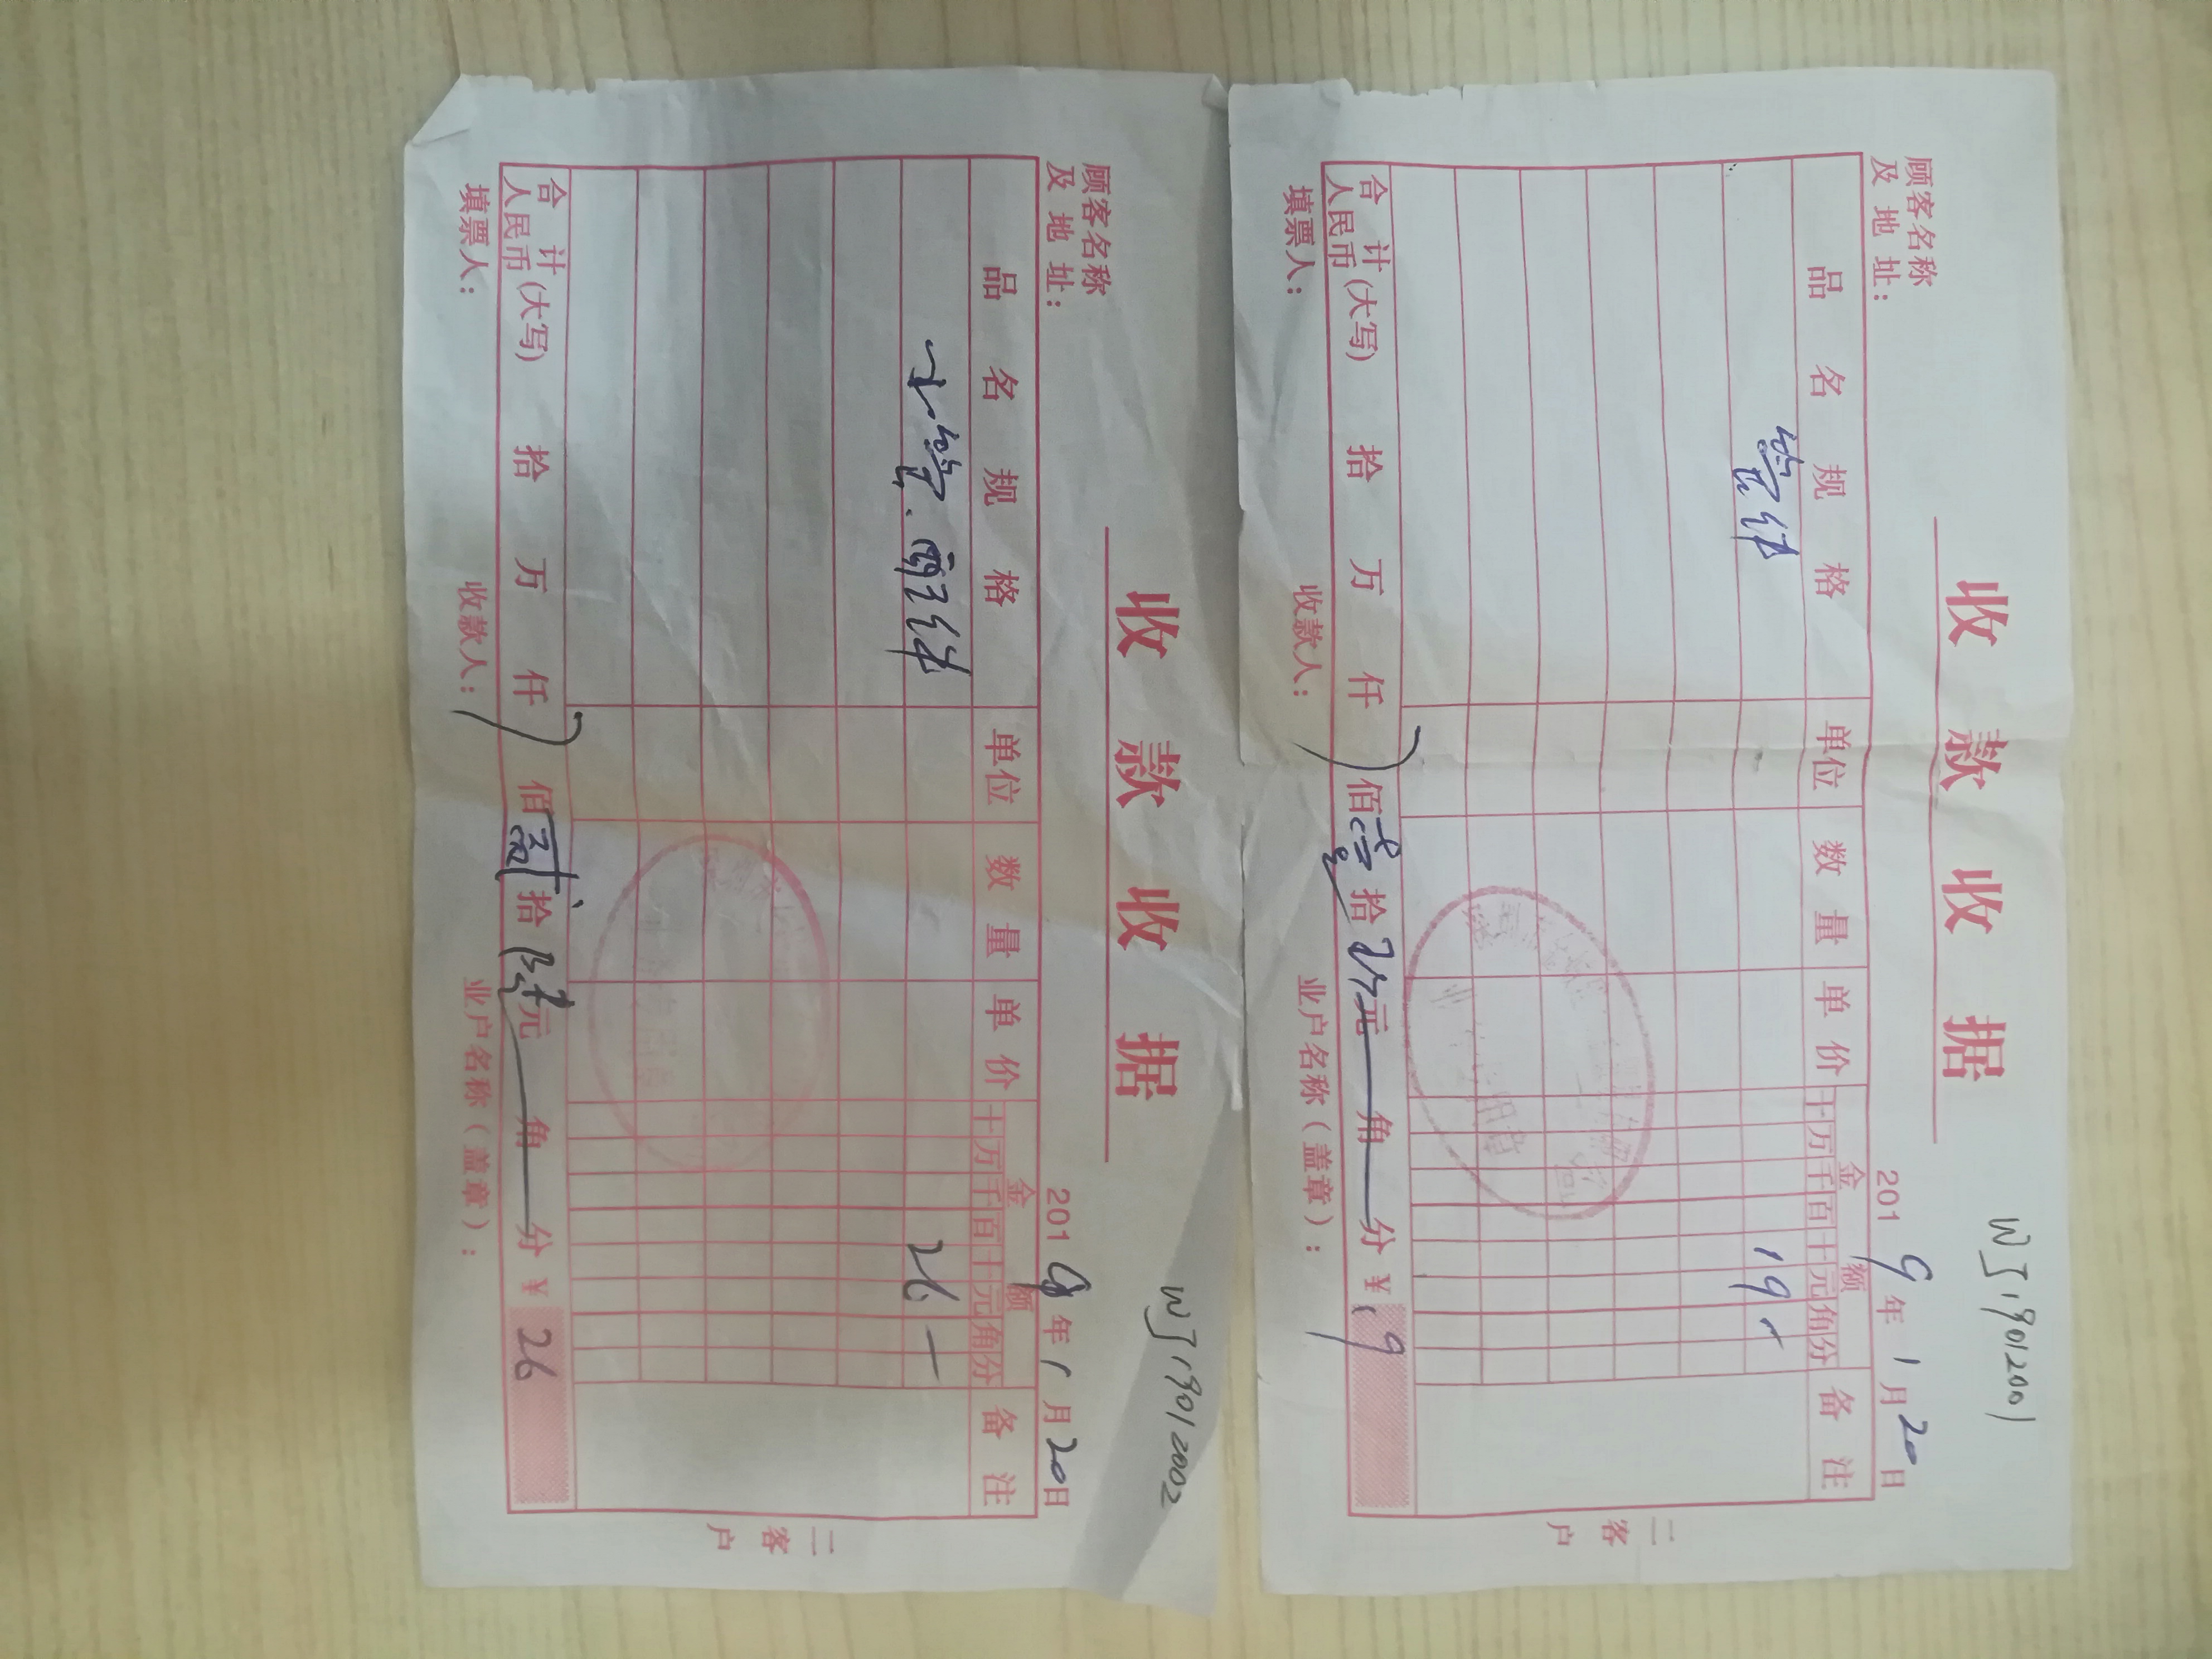 WJ19012001
收款收据
顾客名称
及地址:
2019年1月20日
品名规格 单位 数量 单价 金额 备注
十万千百十元角分
管件 19-
二客户
合计人民币(大写) 拾万仟佰壹拾玖元角分 ¥19
填票人: 收款人: 业户名称(盖章):
WJ19012002
收款收据
顾客名称
及地址:
2019年1月20日
品名规格 单位 数量 单价 金额 备注
十万千百十元角分
水管.配件 26-
二客户
合计人民币(大写) 拾万仟佰贰拾陆元角分 ¥26
填票人: 收款人: 业户名称(盖章):